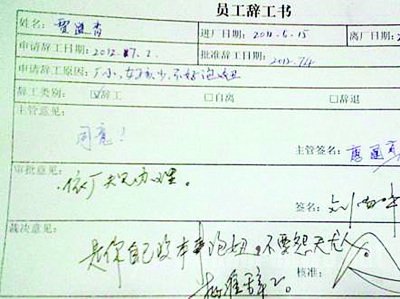 员工辞工书
姓名: 进厂日期: 2011.5.15 离厂日期: 2
申请辞工日期: 2012.7.1. 批准辞工日期: 2012.7.4
申请辞工原因: 厂小,女孩少,不好泡妞
辞工类别: ☑辞工 □自离 □辞退
主管意见:
同意!
主管签名:
审批意见:
依厂规办理。
签名:
裁决意见:
是你自己没本事泡妞,不要怨天尤人
批准辞工。 核准: